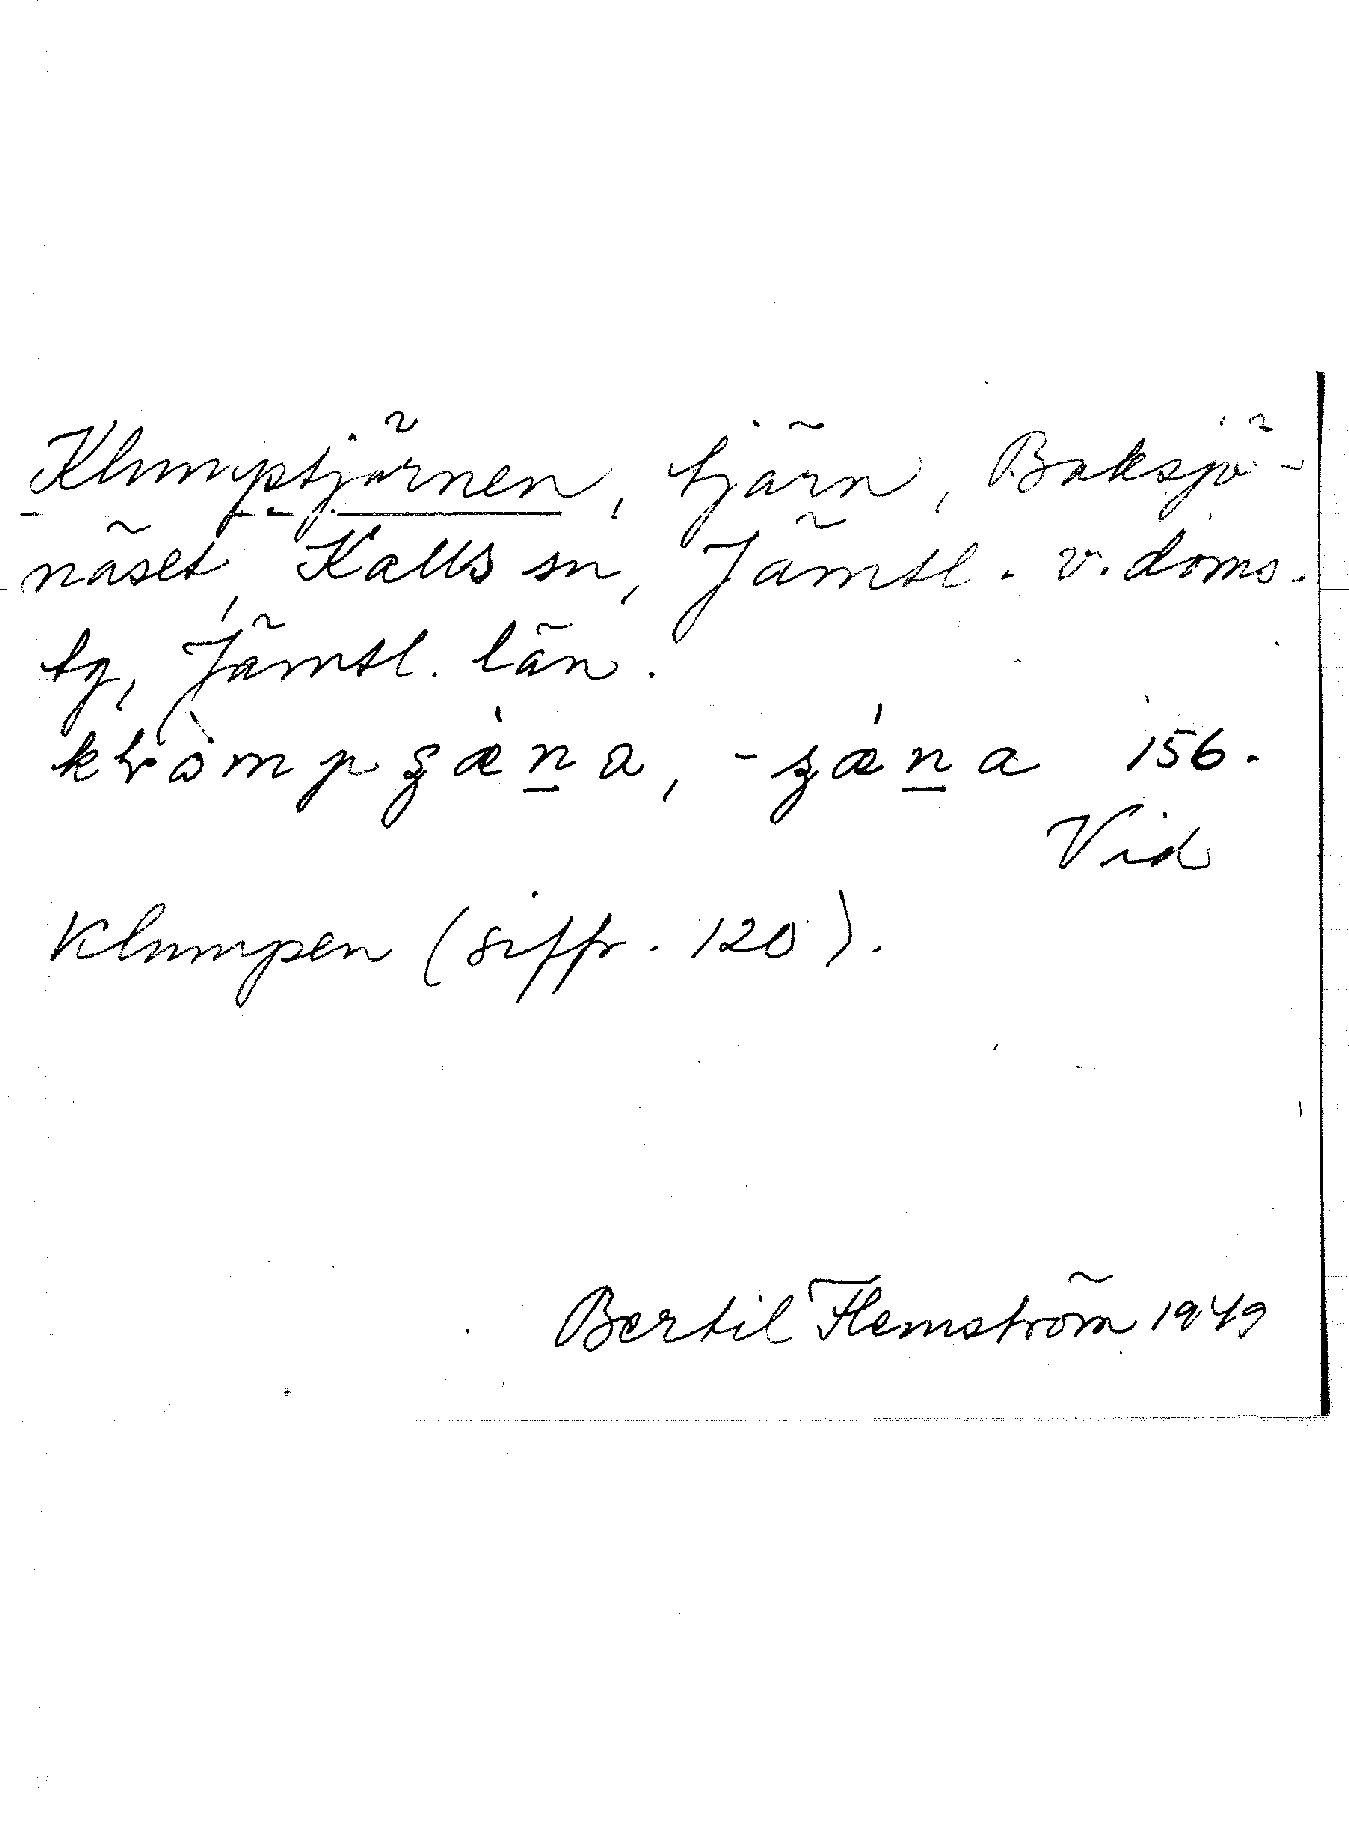 Klumptjärnen, tjärn, Baksjö-
näset, Kalls sn, Jämtl. v. doms.
tg, Jämtl. län.
156.
Vid
Klumpen (siffr. 120).
Bertil Flemström 1949